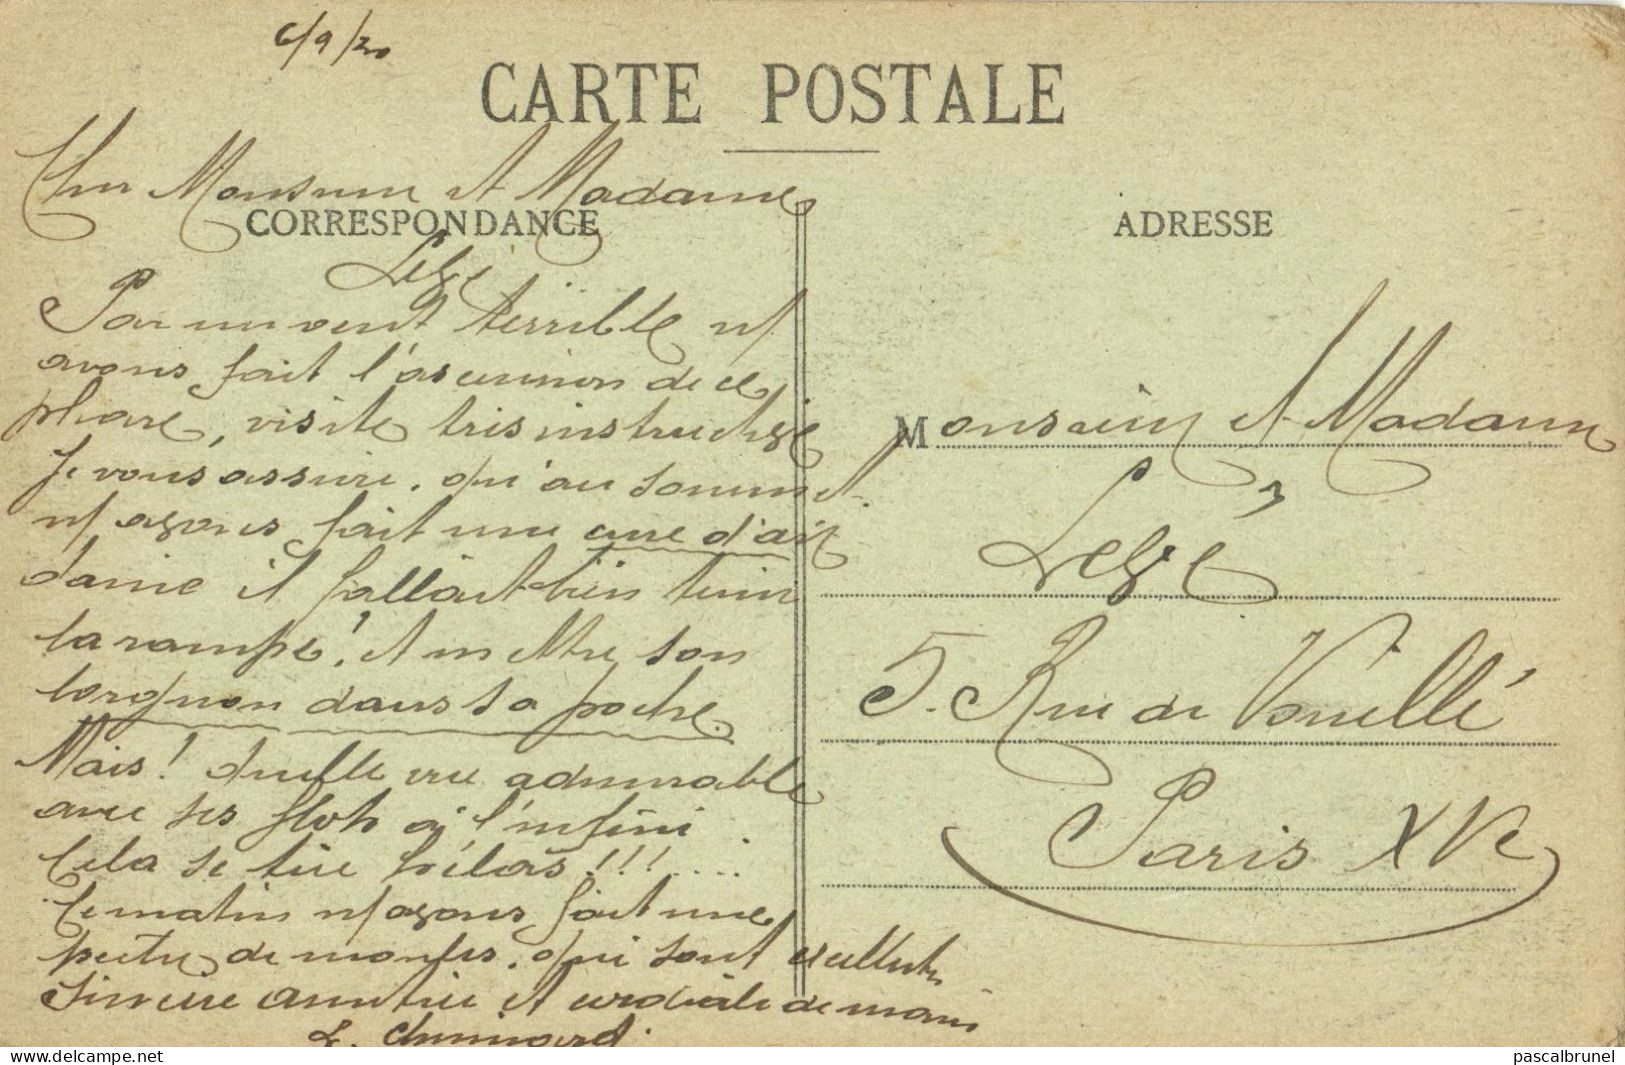 6/9/20
CARTE POSTALE
Cher Monsieur et Madame
CORRESPONDANCE
Legé
Par un vent terrible ns
avons fait l'ascension de ce
phare, visite très instructive
Je vous assure. qu'au sommet
ns avons fait une cure d'air
dame il fallait bien tenir
la rampe! et mettre son
lorgnon dans sa poche.
Mais! quelle vue admirable
avec ses flots à l'infini
Cela se tire hélas!!!....
Ce matin ns avons fait une
de moules. qui sont excellents
Sincère amitié et cordiale de main
ADRESSE
Monsieur et Madame
Legé
5. Rue de Vouillé
Paris XVe
https://www.delcampe.net
pascalbrunel